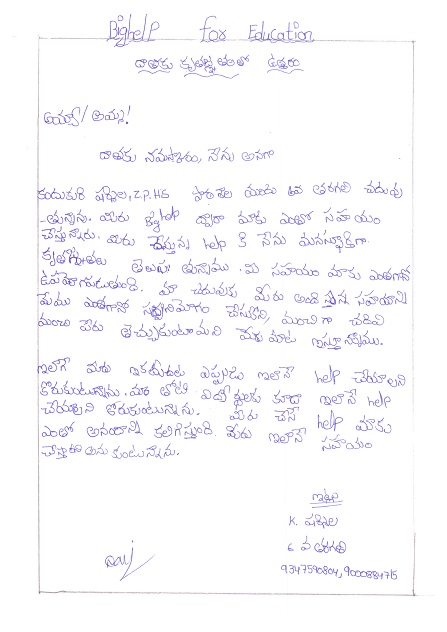 Bighelp for Education
దాతకు కృతజ్ఞతలతో ఉత్తరం
అయ్యా/ అమ్మ!
దాతకు నమస్కారం, నేను అనగా
కందుకురి షర్మిల, Z.P.HS పాఠశాల నుండి 6వ తరగతి చదువు
-తున్నాను. మీరు help ద్వారా మాకు ఎంతో సహాయం
చేస్తున్నారు. మీరు చేస్తున్న help కి నేను మనస్ఫూర్తిగా
కృతజ్ఞతలు తెలుపు తున్నాము. మి సహయం మాకు ఎంతగానో
ఉపయోగపడుతుంది. మా చదువుకు మీరు అందిస్తున్న సహాయాన్ని
మేము ఎంతగానో సద్వినియోగం చేసుకొని, మంచిగా చదివి
మంచి పేరు తెచ్చుకుంటామని మేము మాట ఇస్తూన్నాము.
ఇలాగే మీరు ఎప్పుడు ఇలానే help చేయాలని
కోరుకుంటున్నాను. మా తోటి విద్యార్థులకు కూడా ఇలానే help
చేయాలని కోరుకుంటున్నాను. మీరు చేసే help మాకు
ఎంతో ఆనందాన్ని కలిగిస్తుంది. మీరు ఇలానే సహయం
చేస్తారని అను కుంటున్నాను.
ఇట్లు
K. షర్మిల
6 వ తరగతి
9347590804, 9000884715